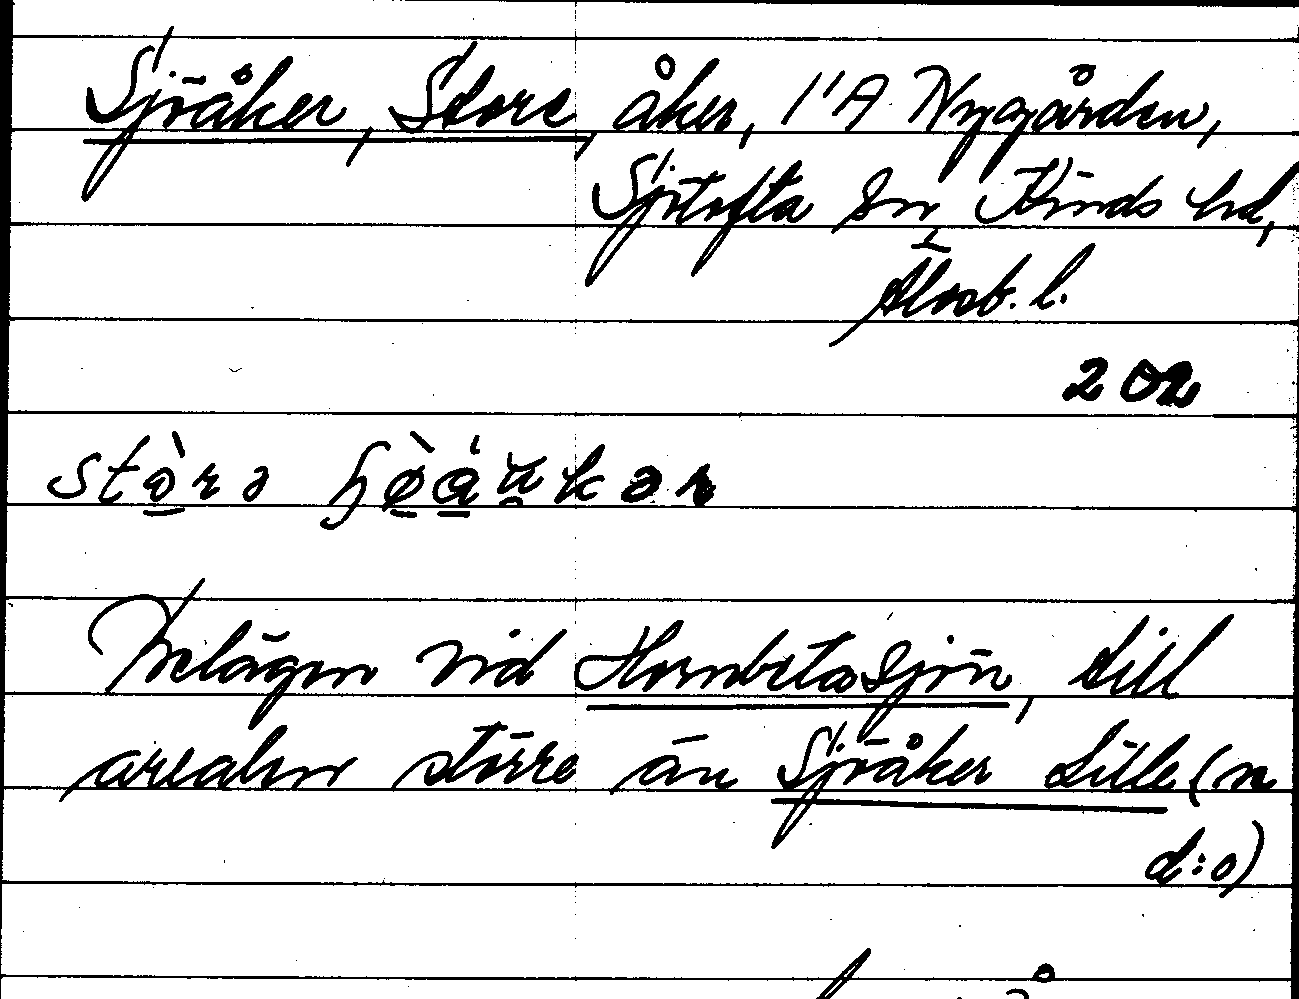 Sjöåker, Store, åker, 1'A Nygården,
Sjötofta sn Kinds hd,
Älvsb. l.
202
belägen vid Hornbetasjön, till
arealen större än Sjöåker Lille (n
d:o)